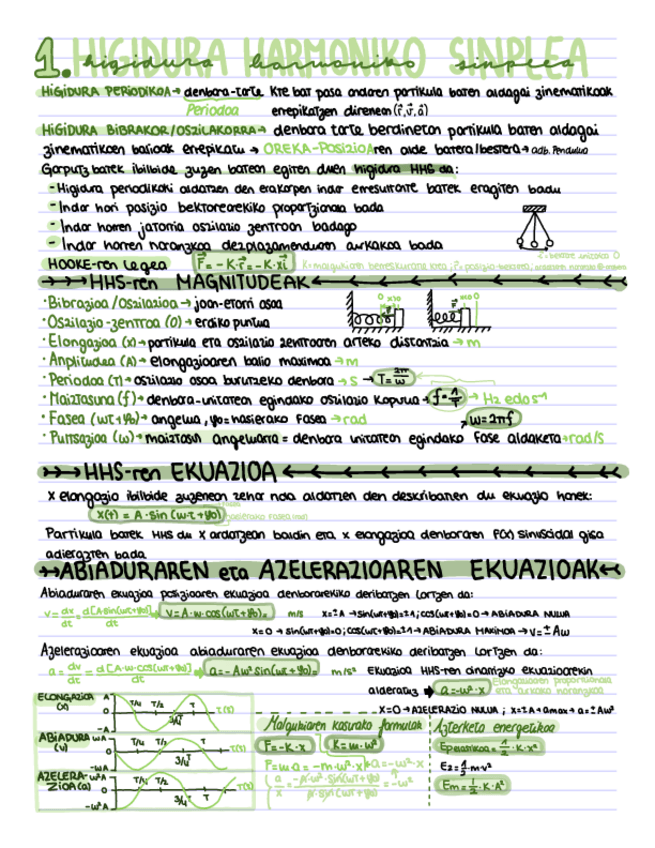 1. HIGIDURA HARMONIKO SINPLEA
higidura harmoniko sinplea
HIGIDURA PERIODIKOA → denbora-tarte kte bat pasa ondoren partikula baten aldagai zinematikoak
Periodoa errepikatzen direnean (r⃗, v⃗, a⃗)
HIGIDURA BIBRAKOR/OSZILAKORRA → denbora tarte berdinetan partikula baten aldagai
zinematikoen balioak errepikatu → OREKA-POSIZIOAren alde batera/bestera → adb. Pendulua
Gorputz batek ibilbide zuzen batean egiten duen higidura HHS da:
- Higidura periodikoki aldatzen den erakarpen indar erresultante batek eragiten badu
- Indar hori posizio bektorearekiko proportzionala bada
- Indar horren jatorria oszilazio zentroan badago
- Indar horren noranzkoa desplazamenduaren aurkakoa bada
HOOKE-ren legea F⃗ = -K·r⃗ = -K·xi⃗
HHS-ren MAGNITUDEAK
· Bibrazioa/Oszilazioa → joan-etorri osoa
· Oszilazio-zentroa (O) → erdiko puntua
· Elongazioa (x) → partikula eta oszilazio zentroaren arteko distantzia → m
· Anplitudea (A) → elongazioaren balio maximoa → m
· Periodoa (T) → oszilazio osoa burutzeko denbora → s → T = 2π/ω
· Maiztasuna (f) → denbora-unitatean egindako oszilazio kopurua → f = 1/T → Hz edo s⁻¹
· Fasea (ωt+φ₀) → angelua, φ₀ = hasierako fasea → rad ω = 2πf
· Pultsazioa (ω) → maiztasun angeluarra = denbora unitatean egindako fase aldaketa → rad/s
HHS-ren EKUAZIOA
x elongazioa ibilbide zuzenean zehar nola aldatzen den deskribatzen du ekuazio honek:
x(t) = A·sin (ω·t+φ₀) hasierako fasea (rad)
Partikula batek HHS du x ardatzean baldin eta x elongazioa denboraren f(x) sinusoidal gisa
adierazten bada
ABIADURAREN eta AZELERAZIOAREN EKUAZIOAK
Abiaduraren ekuazioa posizioaren ekuazioa denborarekiko deribatzen lortzen da:
v = dx/dt = d[A·sin(ωt+φ₀)]/dt = v = A·ω·cos(ωt+φ₀) = m/s x=±A → sin(ωt+φ₀)=±1; cos(ωt+φ₀)=0 → ABIADURA NULUA
x=0 → sin(ωt+φ₀)=0; cos(ωt+φ₀)=±1 → ABIADURA MAXIMOA → v=±Aω
Azelerazioaren ekuazioa abiaduraren ekuazioa denborarekiko deribatzen lortzen da:
a = dv/dt = d[A·ω·cos(ωt+φ₀)]/dt = a = -Aω² sin(ωt+φ₀) = m/s² Ekuazioa HHS-ren oinarrizko ekuazioarekin
alderatuz → a = -ω²·x Elongazioaren proportzionala eta aurkako noranzkoa
x=0 → AZELERAZIO NULUA ; x=±A → amax → a=±Aω²
ELONGAZIOA (x) A 0 -A T/4 T/2 3/4T T T(s)
ABIADURA (v) ωA 0 -ωA T/4 T/2 3/4T T T(s)
AZELERAZIOA (a) ω²A 0 -ω²A T/4 T/2 3/4T T T(s)
Malgukiaren kasurako formulak
F = -K·x K = m·ω²
F = m·a = -m·ω²·x → a = -ω²·x
a/x = -A·ω²·sin(ωt+φ₀)/A·sin(ωt+φ₀) = -ω²
Azterketa energetikoa
Epotentziala = 1/2·K·x²
Ez = 1/2·m·v²
Em = 1/2·K·A²